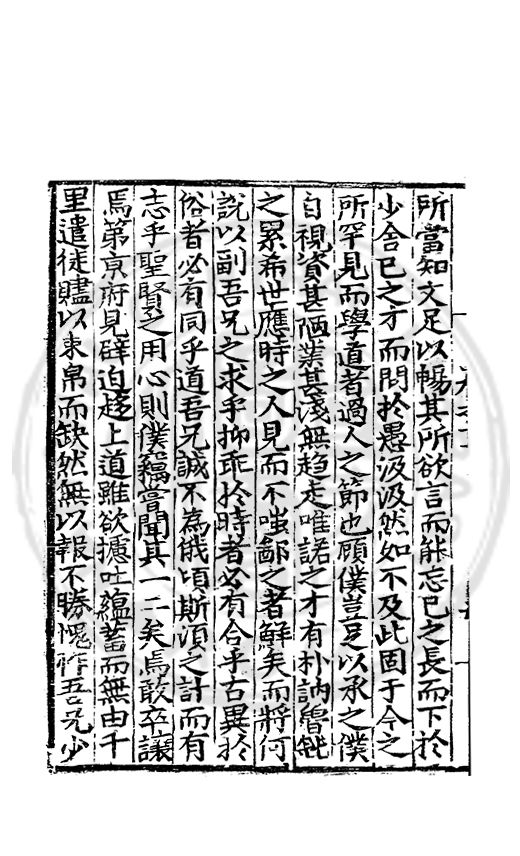 所當知文足以暢其所欲言而能忘己之長而下於
少舍已之才而問於愚汲汲然如不及此固于今之
所罕見而學道者過人之節也顧僕豈足以承之僕
自視資甚陋業甚淺無趨走唯諾之才有朴訥魯鈍
之累希世應時之人見而不嗤鄙之者鮮矣而將何
說以副吾兄之求乎抑乖於時者必有合乎古異於
俗者必有同乎道吾兄誠不為俄頃斯須之計而有
志乎聖賢之用心則僕竊嘗聞其一二矣焉敢卒讓
焉第京府見辟迫趨上道雖欲攄吐蘊蓄而無由千
里遣徒贐以束帛而缺然無以報不勝愧怍吾兄少